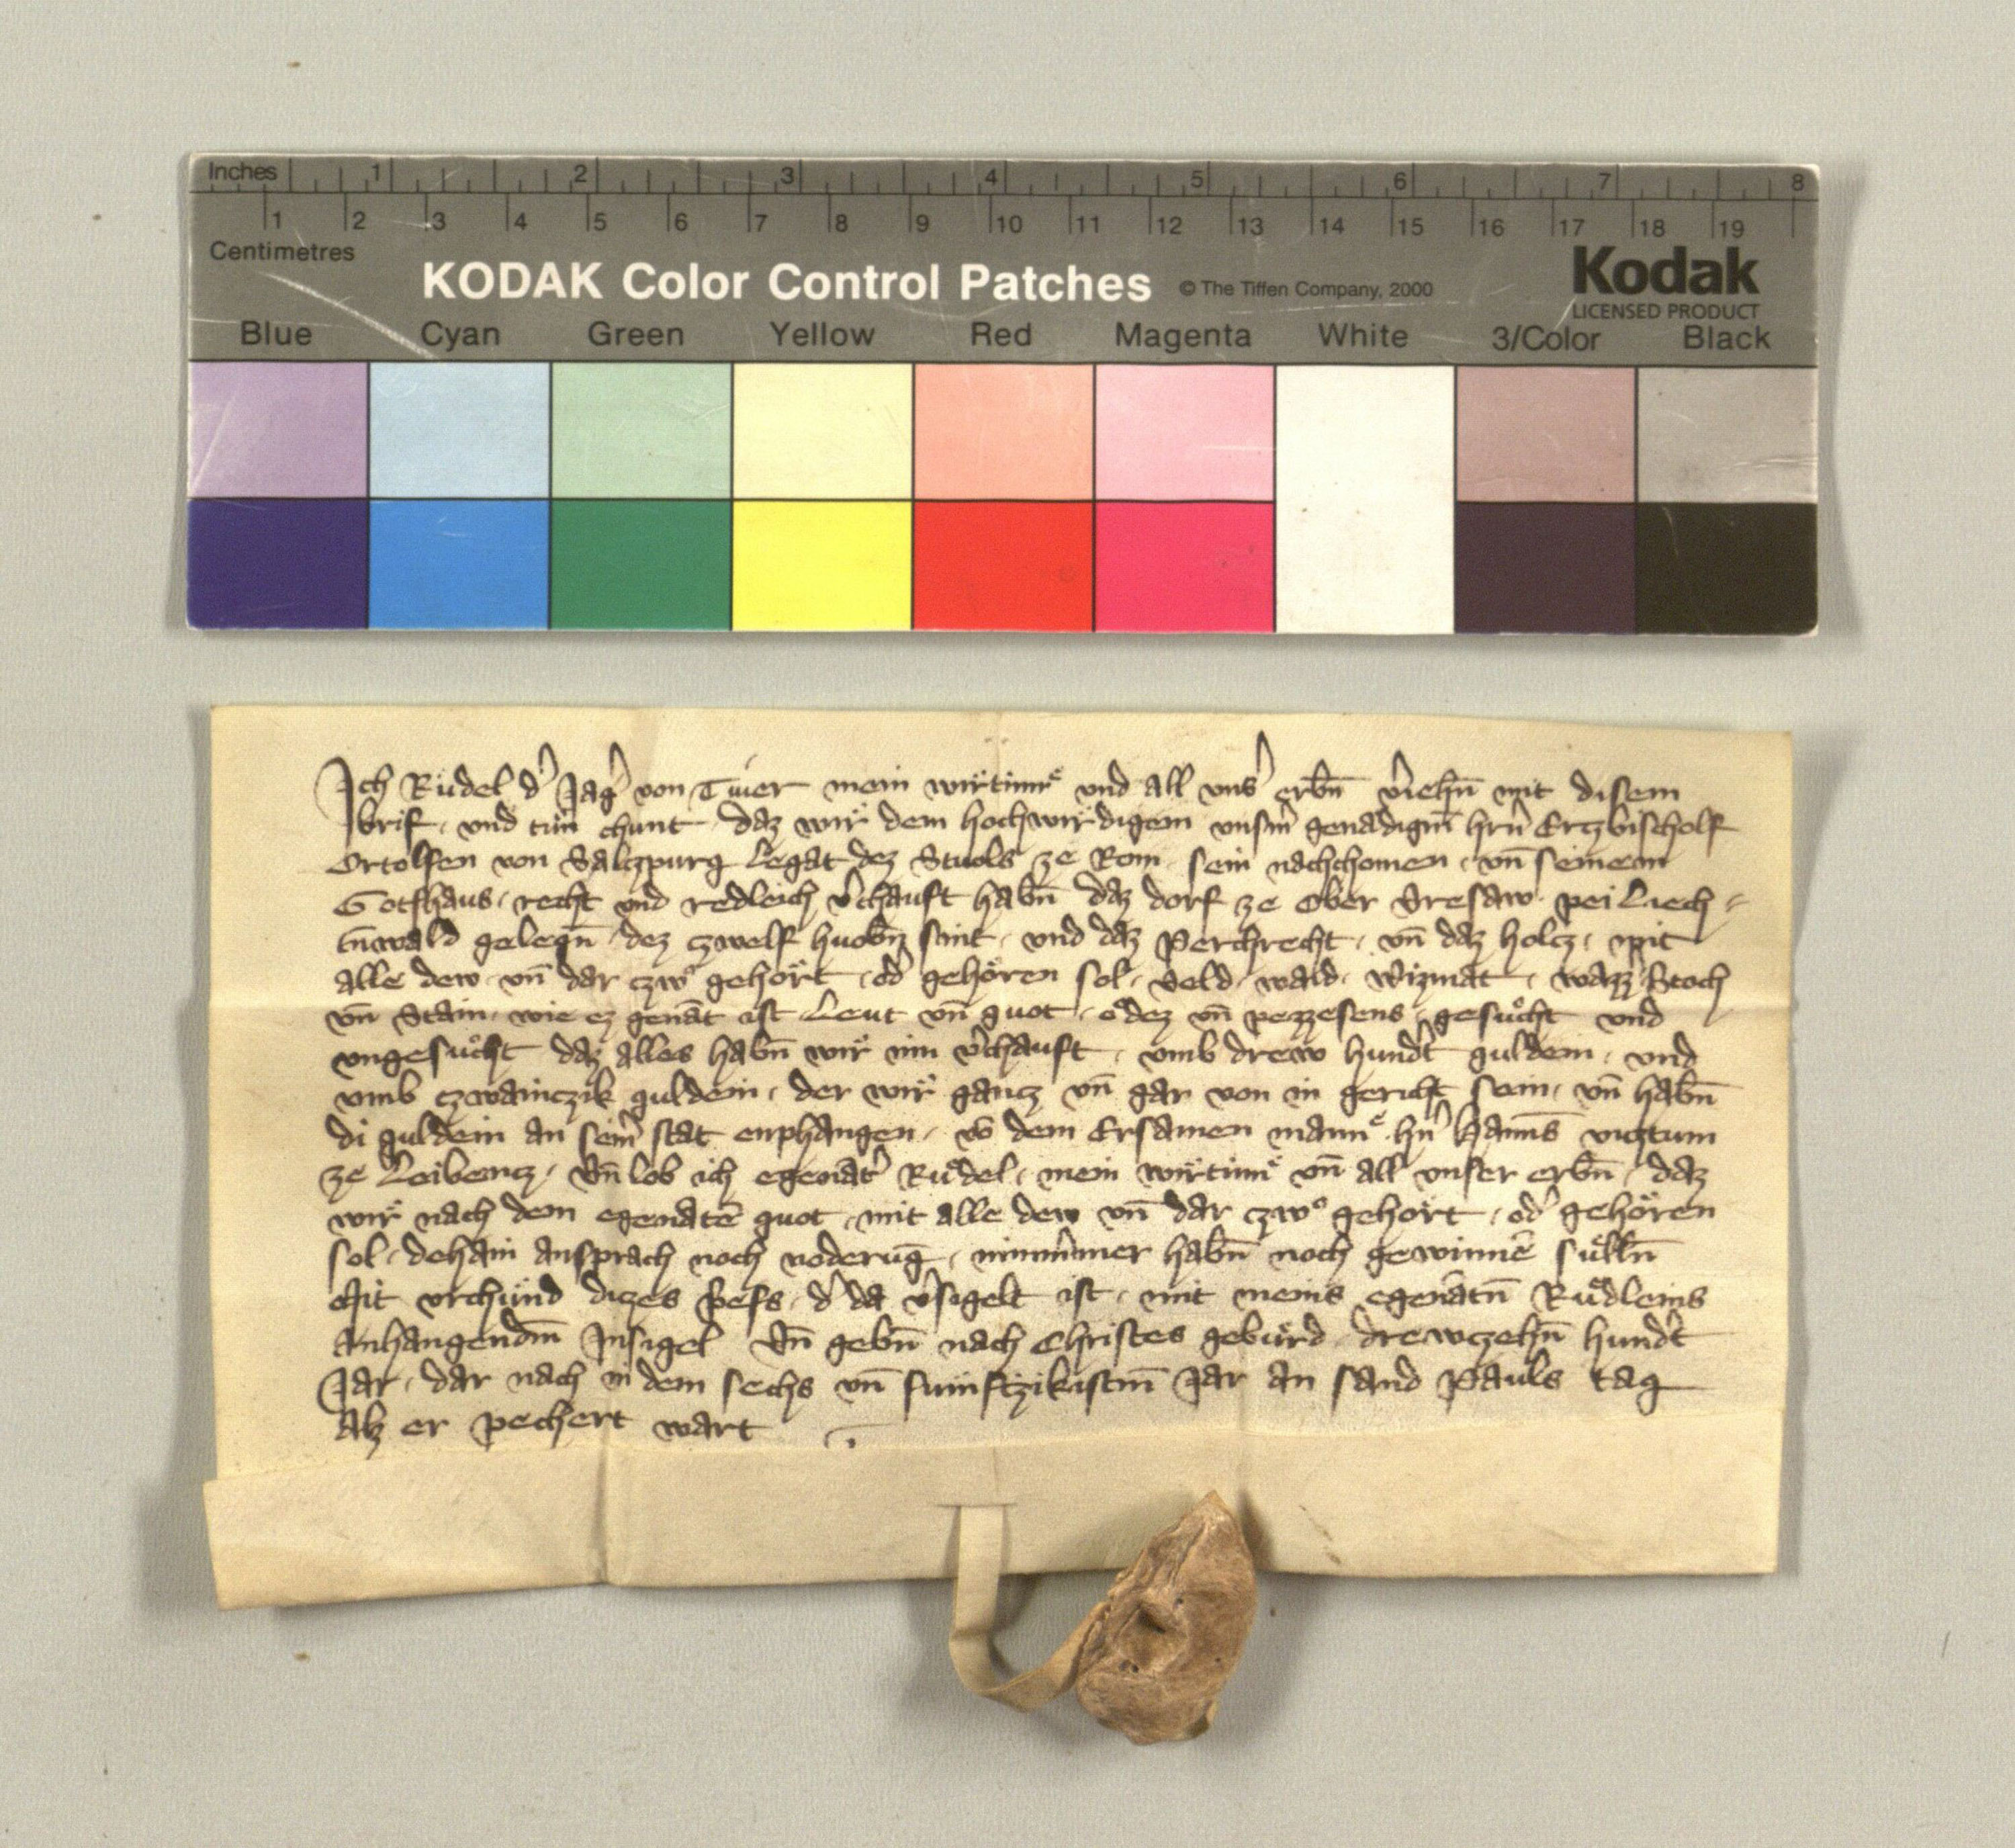 Inches 1 2 3 4 5 6 7 8
1 2 3 4 5 6 7 8 9 10 11 12 13 14 15 16 17 18 19
Centimetres
KODAK Color Control Patches © The Tiffen Company, 2000 Kodak
LICENSED PRODUCT
Blue Cyan Green Yellow Red Magenta White 3/Color Black
Ich Rüdel d' Jag' von mein wirtinn und all uns' erbn̄ v'iehn̄ mit disem
brif · und tün chunt · daz wir dem hochwirdigem unsm̄ genadigm̄ hrn̄ Ertzbischolf
Ortolfen von Saltzpurg Legat dez Stuols ze Rom · sein nachchomen · vn̄ seinem
Gotshaus · recht und redleich v'chauft habn̄ daz dorf ze Ober Vresaw · pei Liech-
tn̄wald gelegn̄ · dez czwelf huobn̄ sint · und daz Perchrecht · vn̄ daz holcz · mit
alle dew · vn̄ dar czwo gehört · od' gehören sol · Veld · wald · wizmat · wazz' Stoch
vn̄ Stain · wie ez genāt ist Leut vn̄ guot · ödez vn̄ pezzesens · gesücht und
ungesücht daz alles habn̄ wir im v'chauft · umb drew hund't guldein · und
umb czwainczik guldein · der wir gancz vn̄ gar von in gericht sein · vn̄ habn̄
di guldein an seim' stat enphangen · vō dem Ersamen mann · hn̄ Hanns viztum
ze Leibencz · Vn̄ lob ich egenāt' Rüdel · mein wirtinn vn̄ all unser erbn̄ · daz
wir nach dem egenatē guot · mit alle dew vn̄ dar czwo gehört · od' gehören
sol · dehain ansprach noch voderūg · nimmmer habn̄ noch gewinnē sülln̄
Mit urchünd dizes · d' da v'sigelt ist · mit meins egenātn̄ Rüdleins
Anhangendm̄ Insigel Vn̄ gebn̄ nach Christes gebürd · drewczehn̄ hund't
Jar · dar nach in dem sechs vn̄ fumftzikistm̄ Jar an sand Pauls tag
Alz er pechert wart